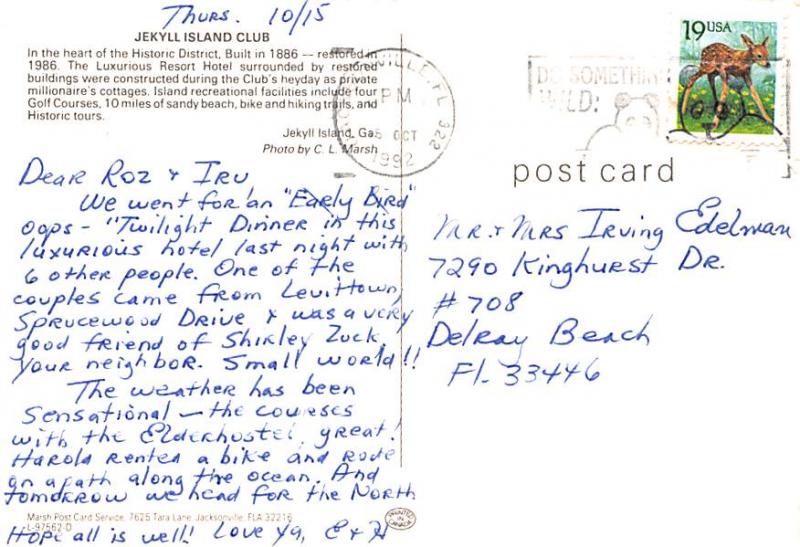 Thurs. 10/15
JEKYLL ISLAND CLUB
In the heart of the Historic District, Built in 1886 -- restored in
1986. The Luxurious Resort Hotel surrounded by restored
buildings were constructed during the Club's heyday as private
millionaire's cottages. Island recreational facilities include four
Golf Courses, 10 miles of sandy beach, bike and hiking trails, and
Historic tours.
Jekyll Island, Ga.
Photo by C. L. Marsh
Dear Roz & Irv
We went for an "Early Bird"
oops - "Twilight Dinner in this
luxurious hotel last night with
6 other people. One of the
couples came from Levittown,
Sprucewood Drive & was a very
good friend of Shirley Zuck,
your neighbor. Small world!!
The weather has been
sensational - the courses
with the Elderhostel, great!
Harold rented a bike and rode
on a path along the ocean. And
tomorrow we head for the North
Hope all is well! Love ya, E & H
Marsh Post Card Service, 7625 Tara Lane, Jacksonville, FLA 32216
L-97562-D
PRINTED IN CANADA
VILLE, FL 322
PM
OCT
1992
DO SOMETHING
WILD:
19 USA
post card
Mr. & Mrs Irving Edelman
7290 Kinghurst Dr.
# 708
Delray Beach
Fl. 33446